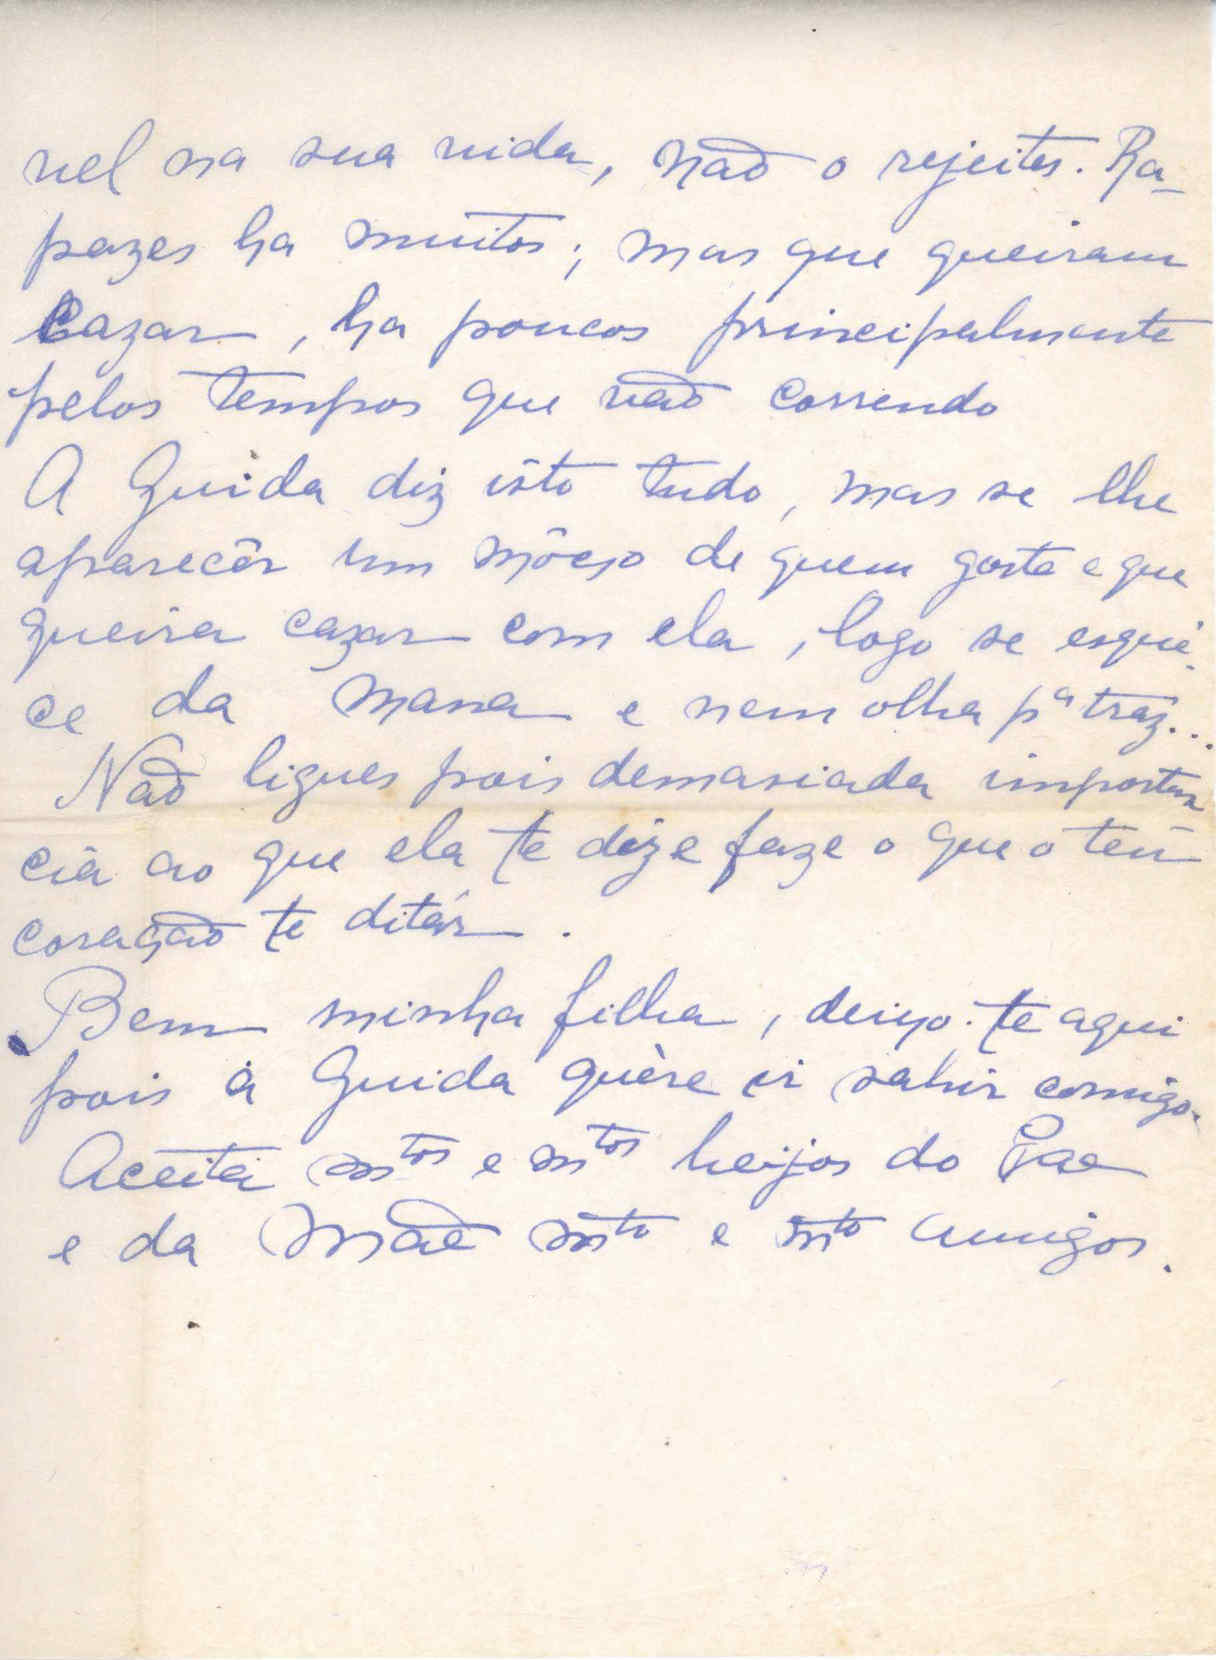 vel na sua vida, não o rejeites. Ra-
pazes ha muitos; mas que queiram
Cazar, ha poucos principalmente
pelos tempos que vão correndo
A Guida diz isto tudo, mas se lhe
aparecêr um môço de quem goste e que
queira cazar com ela, logo se esqué-
ce da mana e nem olha pª traz...
Não ligues pois demasiada importan
cia ao que ela te diz e faze o que o teu
coração te ditár.
Bem minha filha, deixo-te aqui
pois a Guida quère ir sahir comigo.
Aceita mtos e mtos beijos do Pae
e da Mãe mto e mto amigos.